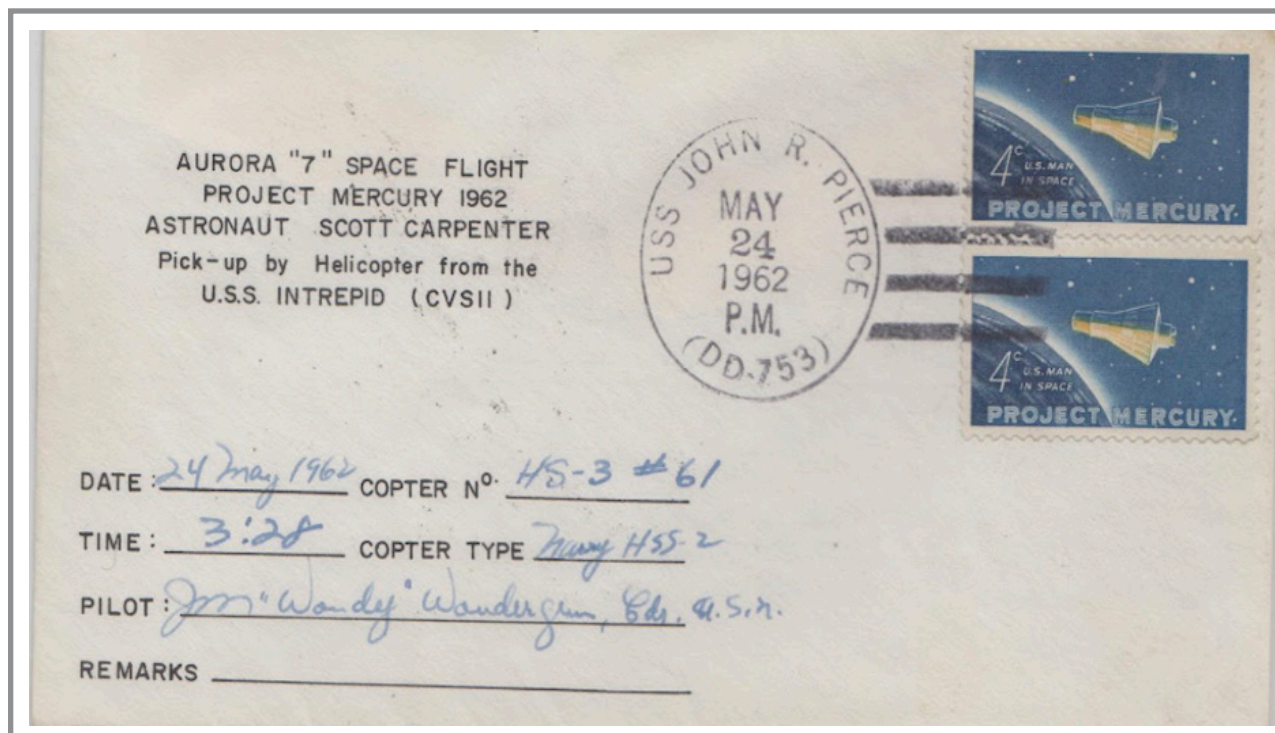 AURORA "7" SPACE FLIGHT
PROJECT MERCURY 1962
ASTRONAUT SCOTT CARPENTER
Pick-up by Helicopter from the
U.S.S. INTREPID (CVSII)
USS JOHN R. PIERCE
MAY
24
1962
P.M.
(DD-753)
4c U.S. MAN
IN SPACE
PROJECT MERCURY.
4c U.S. MAN
IN SPACE
PROJECT MERCURY.
DATE: 24 May 1962 COPTER No. HS-3 #61
TIME: 3:28 COPTER TYPE Navy HSS-2
PILOT: "Wondy" Wondergem, Cdr. U.S.N.
REMARKS